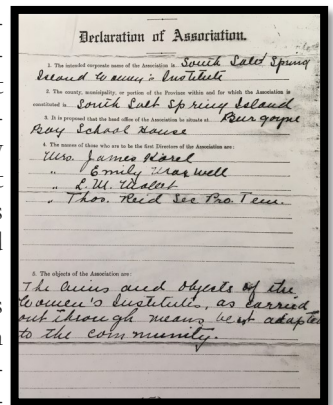 Declaration of Association.
1. The intended corporate name of the Association is South Salt Spring
Island Women's Institute
2. The county, municipality, or portion of the Province within and for which the Association is
constituted is South Salt Spring Island
3. It is proposed that the head office of the Association be situate at Burgoyne
Bay School House
4. The names of those who are to be the first Directors of the Association are:
Mrs. James Horel
" Emily Maxwell
" L. M. Mollet
" Thos. Reid Sec Pro. Tem.
5. The objects of the Association are:
The aims and objects of the
Women's Institutes, as carried
out through means best adapted
to the community.